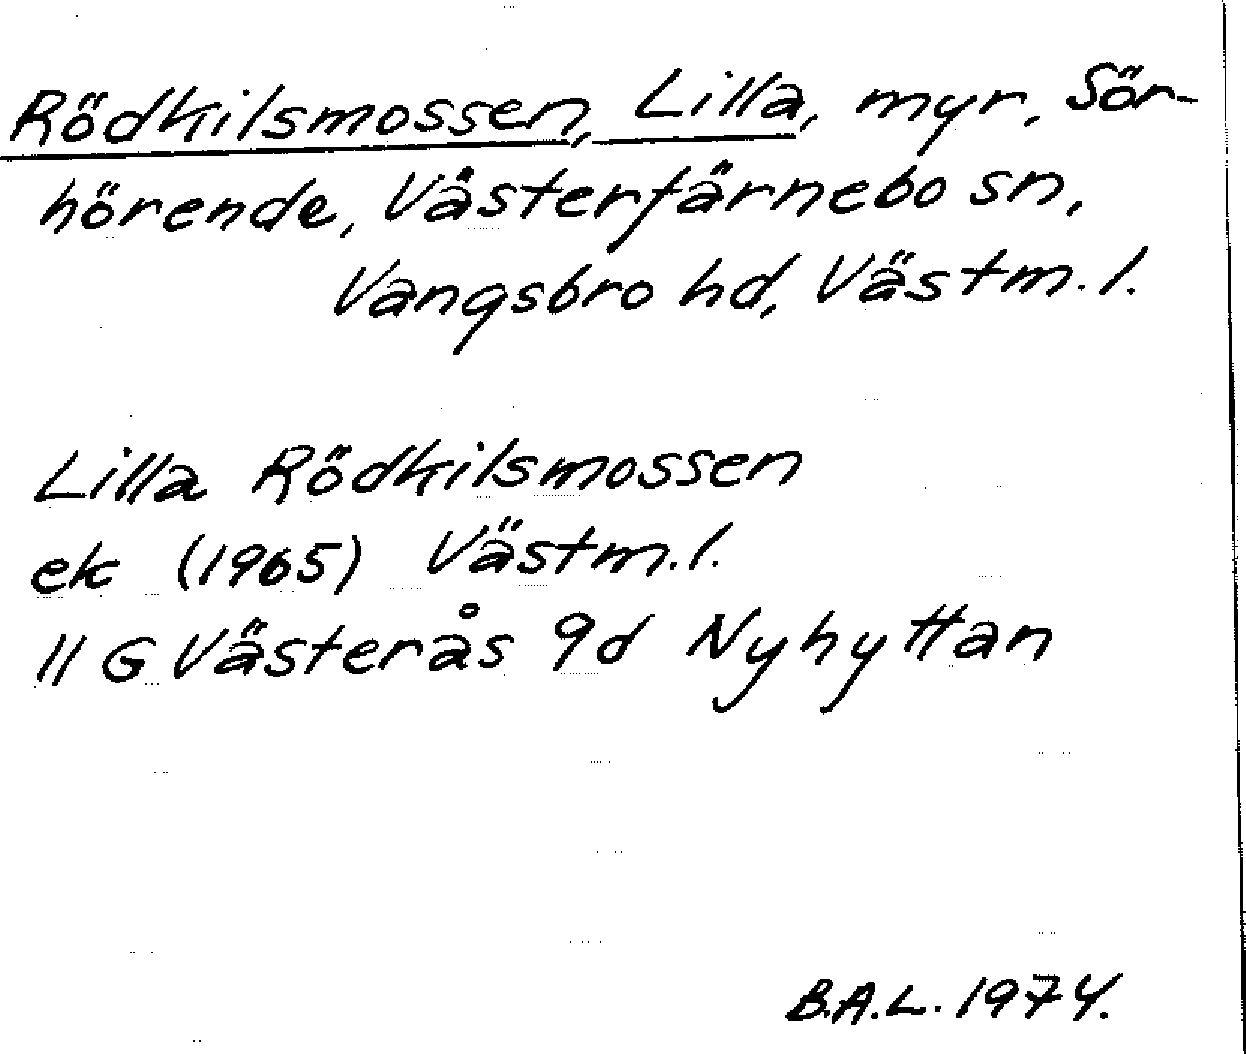 Rödkilsmossen, Lilla, myr, Sör-
hörende, Västerfärnebo sn,
Vangsbro hd, Västm.l.
Lilla Rödkilsmossen
ek (1965) Västm.l.
11 G Västerås 9d Nyhyttan
B.A.L. 1974.